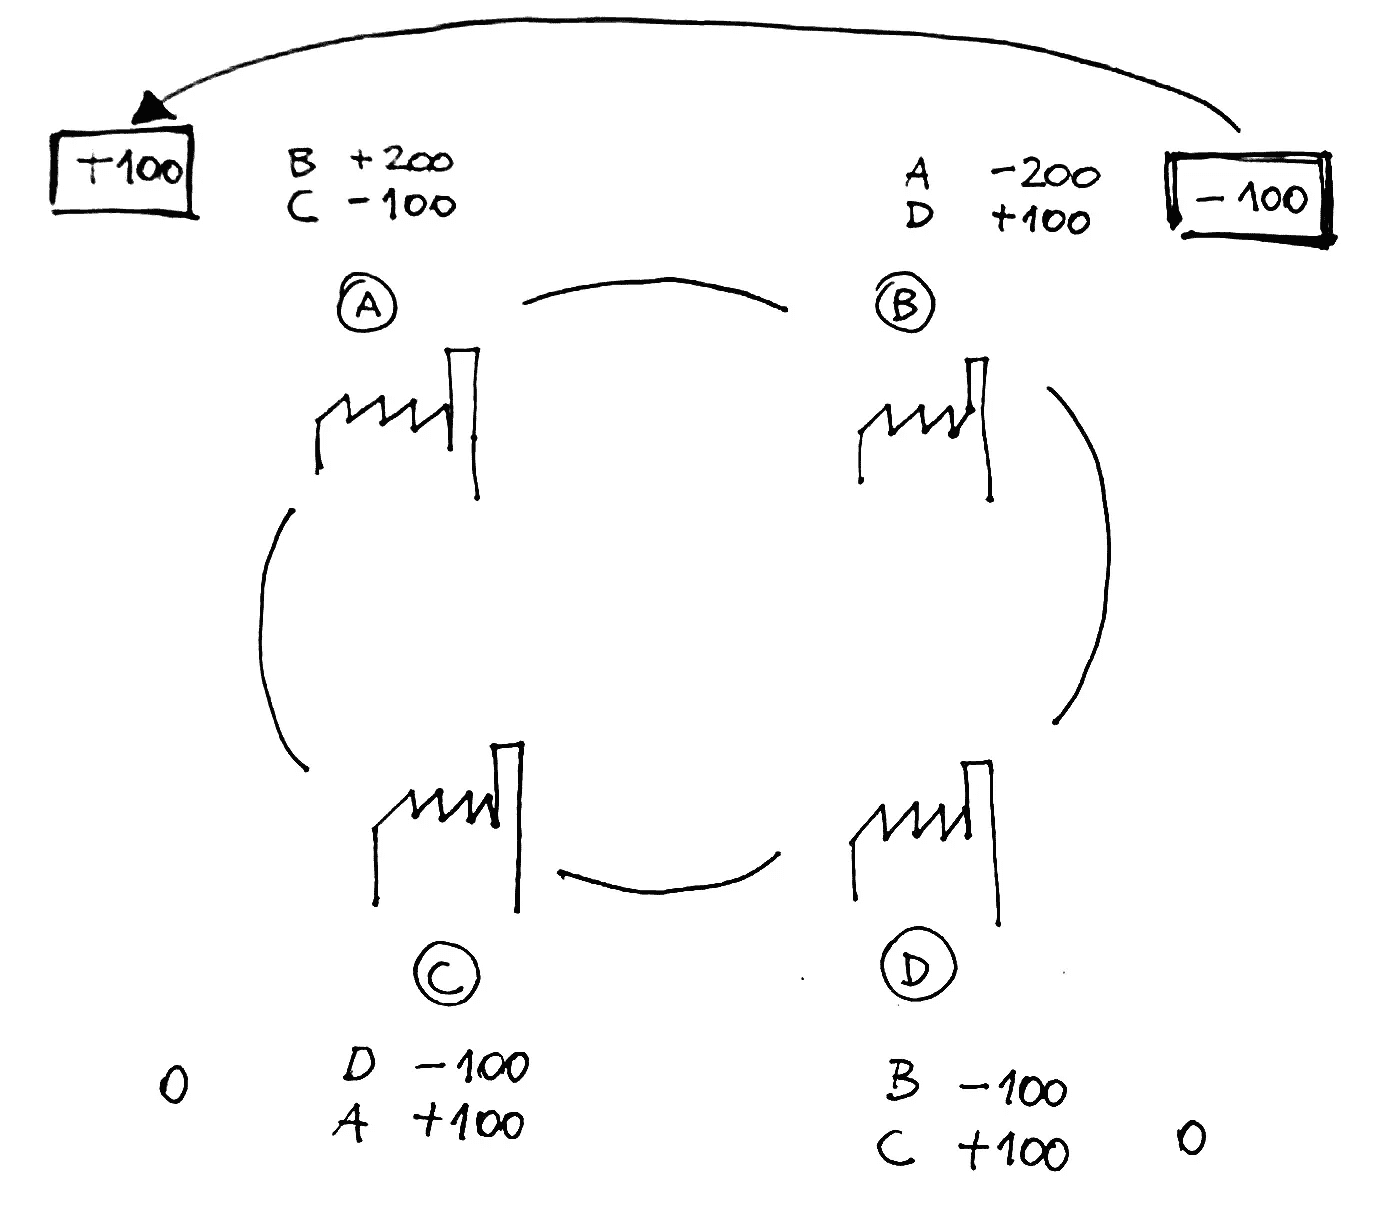 +100
B +200
C -100
A -200
D +100
- 100
A
B
C
D
D -100
A +100
0
B -100
C +100
0